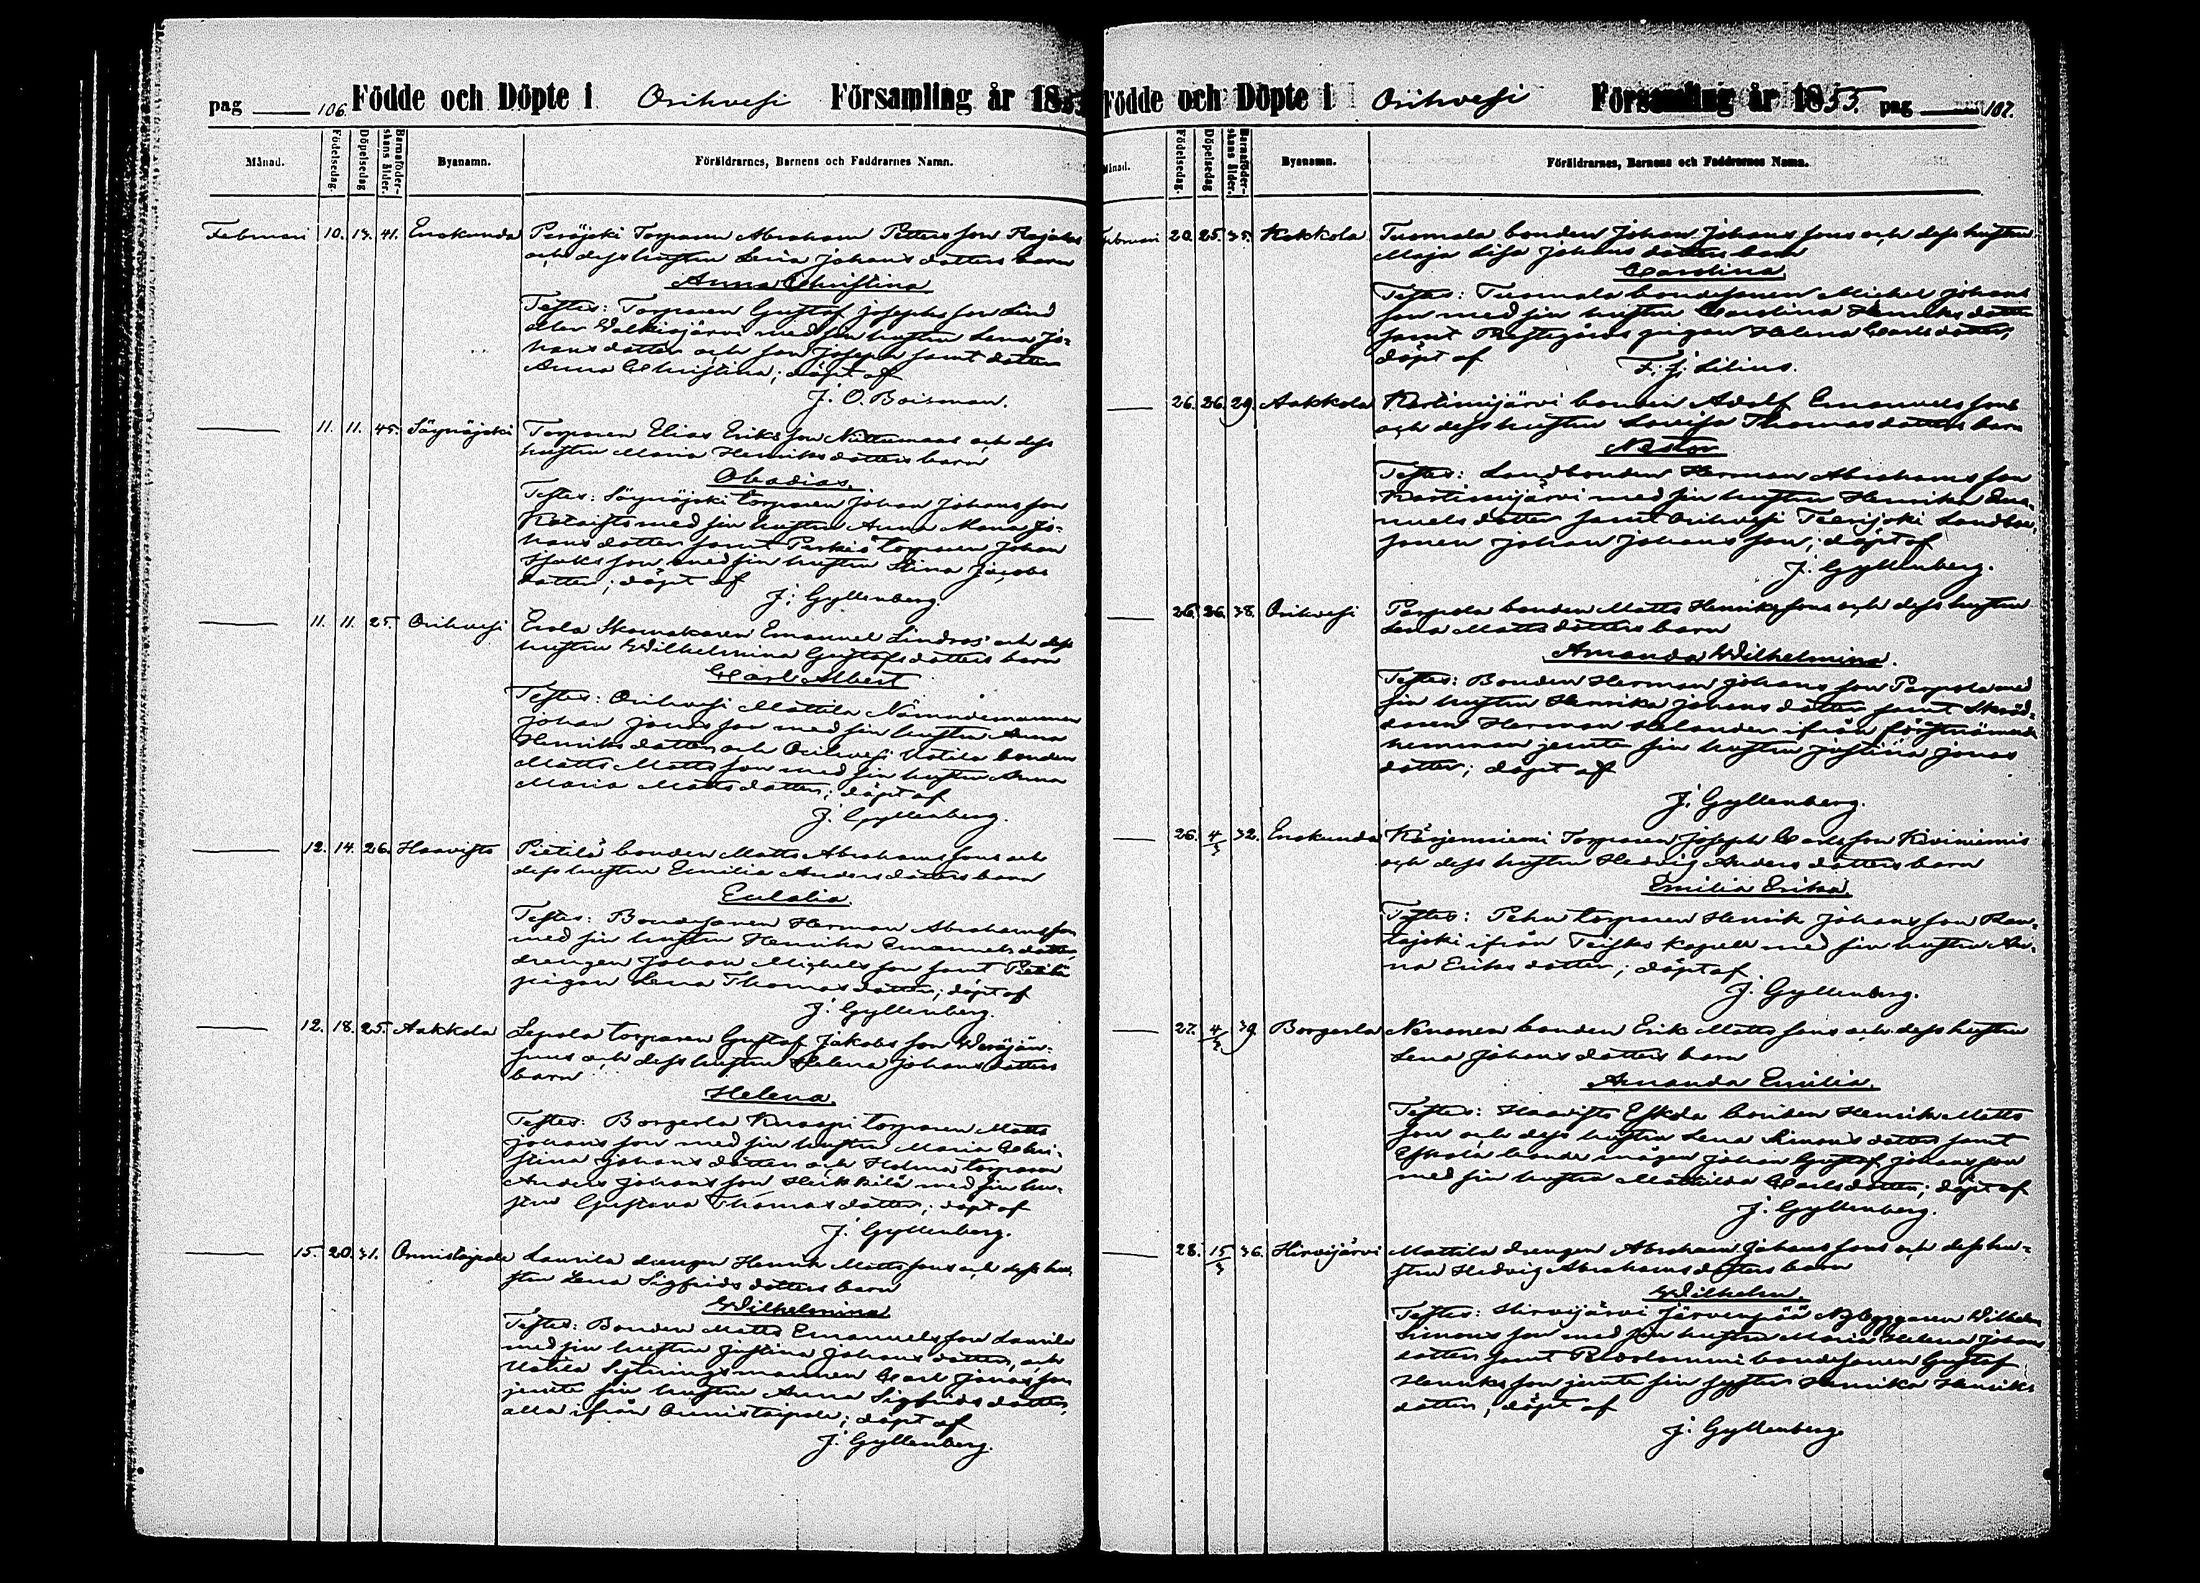 pag 106. Födde och Döpte i Orihvesi Församling år 185
Månad. Födelsedag. Döpelsedag Barnaföder-skans ålder. Bysnamn. Föräldrarnes, Barnens och Faddrarnes Namn.
Februari 10. 13. 41. Enokunda Torparen Abraham Petters son
och dess hustru Lena Johans dotters barn
Anna Christina
Testes: Torparen Gustof Josephs son Lind
med sin hustru Lena Jo-
hans dotter och son Joseph samt dotter
Anna Christina; döpt af
J. O. Boisman.
11. 11. 45. Säynäjoki Torparen Elias Eriks son och dess
hustru Maria Henriks dotters barn
Obadias.
Testes: Säynäjoki torparen Johan Johans son
med sin hustru Anna Maria Jo-
hans dotter samt torparen Johan
son med sin hustru Stina Jacobs
dotter; döpt af
J. Gyllenberg.
11. 11. 25. Orihvesi Erola Skomakaren Emanuel Lindros och dess
hustru Wilhelmina Gustofs dotters barn
Carl Albert
Testes: Orihvesi Mattila Nämndemannen
Johan Jonas son med sin hustru Anna
Henriks dotter och Orihvesi Uotila bonden
Matts Matts son med sin hustru Anna
Maria Matts dotter; döpt af
J. Gyllenberg.
12. 14. 26. Haavisto Pietilä bonden Matts Abrahams sons och
dess hustru Emilia Anders dotters barn
Eulalia
Testes: Bondesonen Herman Abrahams son
med sin hustru Henrika Emanuels dotter,
drengen Johan Michels son samt Pietilä
pigan Lena Thomas dotter; döpt af
J. Gyllenberg.
12. 18. 25. Aakkola Lepola torparen Gustaf Jakobs son
och dess hustru Helena Johans dotters
barn
Helena.
Testes: Borgerla Knaapi torparen Matts
Johans son med sin hustru Maria Chri-
stina Johans dotter och Holma torparen
Anders Johans son Heikkilä med sin hu-
stru Gustava Thomas dotter; döpt af
J. Gyllenberg.
15. 20. 31. Onnistaipale Laurila drengen Henrik Matts sons och dess hu-
stru Lena Sigfrids dotters barn
Wilhelmina
Testes: Bonden Matts Emanuels son Laurila
med sin hustru Justina Johans dotter, och
Uotila Sytningsmannen Carl Jonas son
jemte sin hustru Anna Sigfrids dotter,
alla ifrån Onnistaipale; döpt af
J. Gyllenberg.
Födde och Döpte i Orihvesi Församling år 1855. pag 107.
Månad. Födelsedag. Döpelsedag Barnaföder-skans ålder. Bysnamn. Föräldrarnes, Barnens och Faddrarnes Namn.
Februari 20. 25. 35. Kokkola Tuomala bonden Johan Johans sons och dess hustru
Maja Lisa Johans dotters barn
Carolina
Testes: Tuomala bondesonen Michel Johans
son med sin hustru Carolina Henriks dotter
samt Prestegårds pigan Helena Carls dotter,
döpt af F. J. Lilius.
26. 26. 29. Aakkola Kortinijärvi bonden Adolf Emanuels sons
och dess hustru Lovisa Thomas dotters barn
Nestor
Testes: Landbonden Herman Abrahams son
Kortinijärvi med sin hustru Henrika Ema-
nuels dotter samt Orihvesi
sonen Johan Johans son; döpt af
J. Gyllenberg.
26. 26. 38. Orihvesi Parpola bonden Matts Henriks sons och dess hustru
Lena Matts dotters barn
Amanda Wilhelmina.
Testes: Bonden Herman Johans son Parpola med
sin hustru Henrika Johans dotter samt Skräd-
daren Herman Helander ifrån förstnämnde
hemman jemte sin hustru Justina Jonas
dotter; döpt af
J. Gyllenberg.
26. 4/3 32. Enokunda Torparen Joseph Carls son
och dess hustru Hedvig Anders dotters barn
Emilia Erika.
Testes: torparen Henrik Johans son
ifrån Teisko kapell med sin hustru An-
na Eriks dotter; döpt af
J. Gyllenberg.
27. 4/3 39. Borgerla Nenonen bonden Erik Matts sons och dess hustru
Lena Johans dotters barn
Amanda Emilia.
Testes: Haavisto Eskola bonden Henrik Matts
son och dess hustru Lena Simons dotter samt
Eskola bonde mågen Johan Gustaf Johans son
med sin hustru Mathilda Carls dotter; döpt af
J. Gyllenberg.
28. 15/3 36. Hirvijärvi Mattila drengen Abraham Johans sons och dess hu-
stru Hedvig Abrahams dotters barn
Wilhelm.
Testes: Hirvijärvi Järvenpää Nybyggaren Wilhelm
Simons son med sin hustru Maria Helena Johans
dotter samt bondesonen Gustaf
Henriks son jemte sin syster Henrika Henriks
dotter, döpt af
J. Gyllenberg.